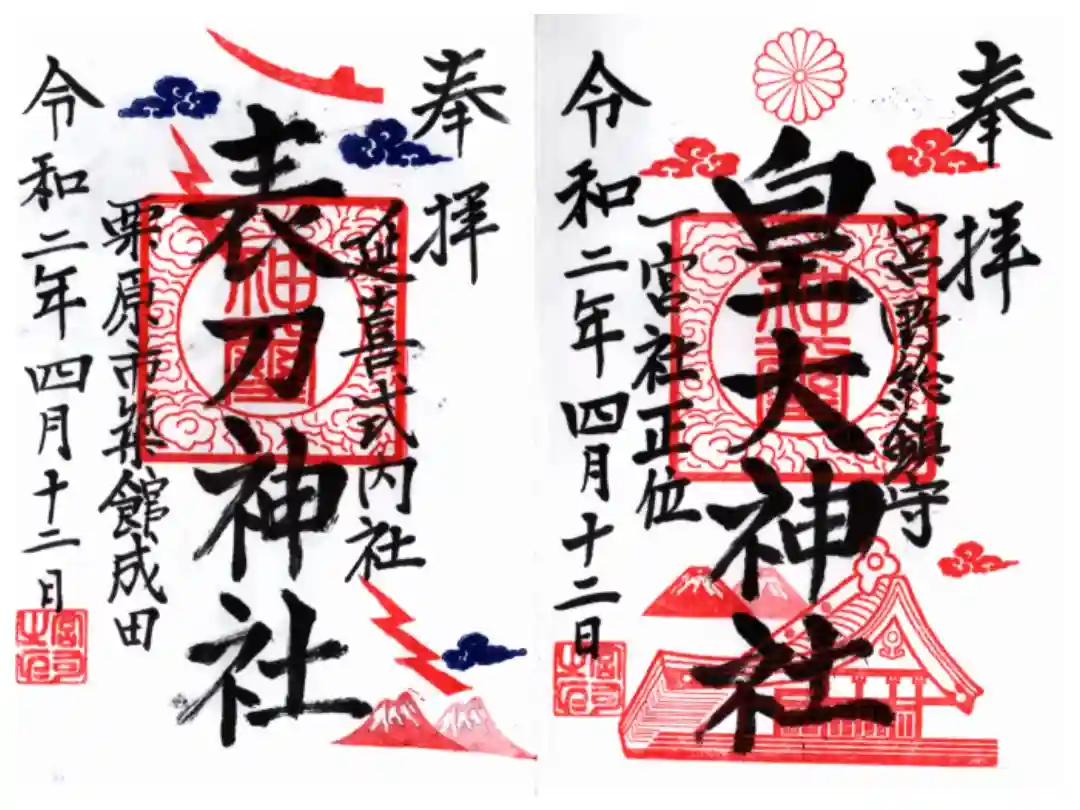 奉拝
宮野総鎮守
皇大神社
一宮社正位
令和二年四月十二日
奉拝
延喜式内社
表刀神社
栗原市築館成田
令和二年四月十二日